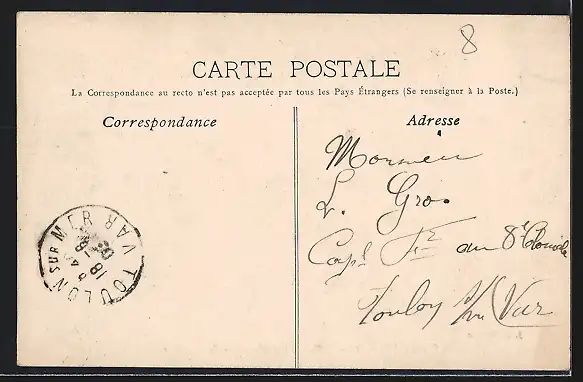 8
CARTE POSTALE
La Correspondance au recto n'est pas acceptée par tous les Pays Étrangers (Se renseigner à la Poste.)
Correspondance
Adresse
Monsieur
L. Gros
Capl Fr au 8e Coloniale
Toulon s/m Var
TOULON SUR MER VAR